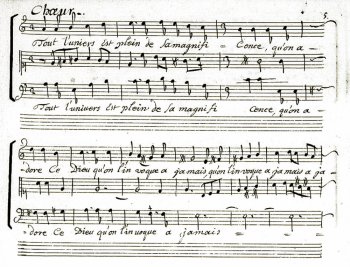 Chœur.
5
Tout l'univers Est plein de sa magnifi = Cence, qu'on a -
Tout l'univers Est plein de sa magnifi Cence, qu'on a -
-dore Ce Dieu qu'on l'in voque a jamais qu'on l'invoque a jamais a ja-
-dore Ce Dieu qu'on l'invoque a jamais